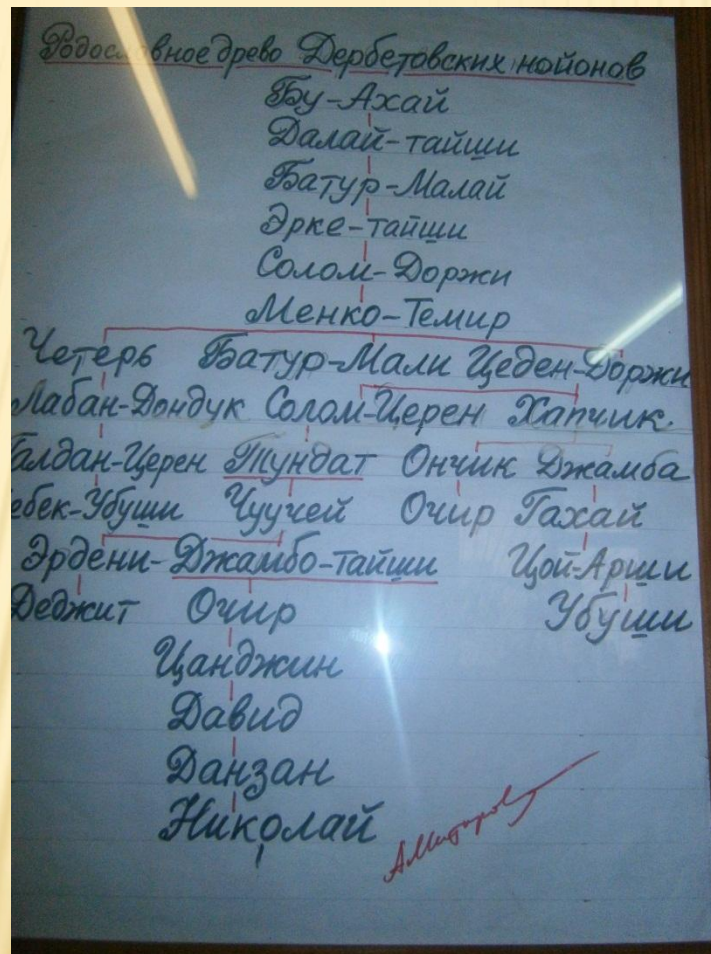 Родословное древо Дербетовских нойонов
Бу-Ахай
Далай-тайши
Батур-Малай
Эрке-тайши
Солом-Доржи
Менко-Темир
Четерь Батур-Мали Цеден-Доржи
Лабан-Дондук Солом-Церен Хапчик.
Галдан-Церен Тундат Ончик Джамба
ебек-Убуши Чуучей Очир Гахай
Эрдени- Джамбо-тайши Цой-Арши
Деджит Очир Убуши
Цанджин
Давид
Данзан
Николай